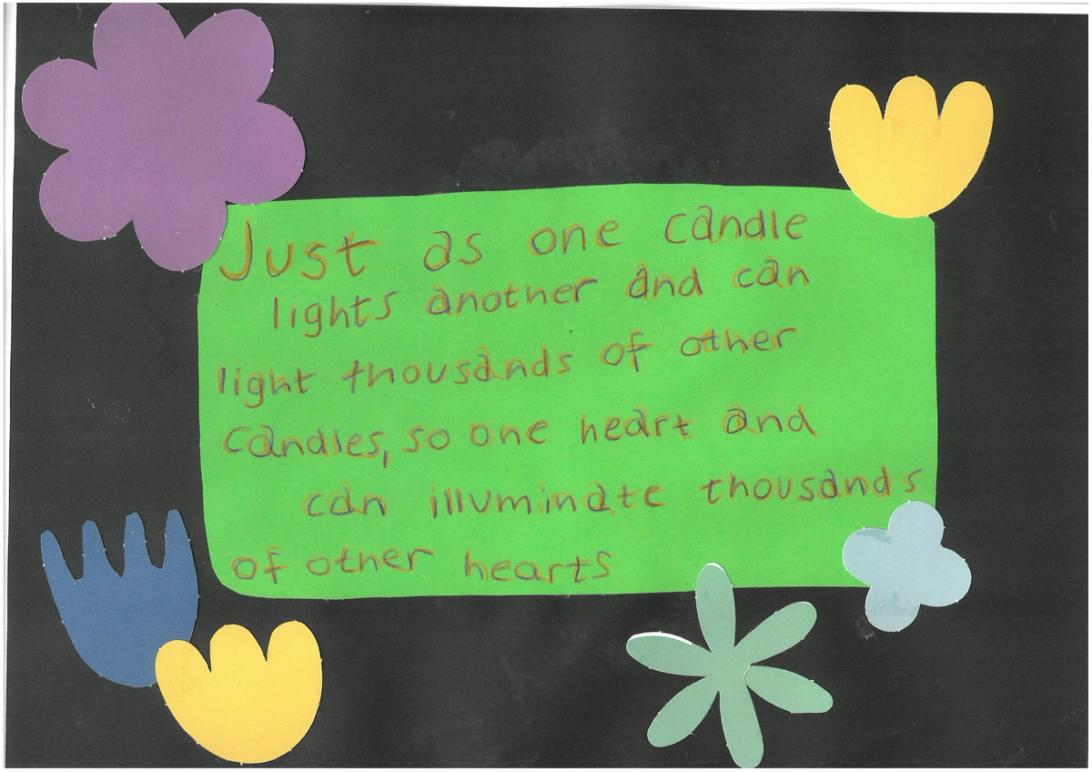 Just as one candle
lights another and can
light thousands of other
candles, so one heart and
can illuminate thousands
of other hearts